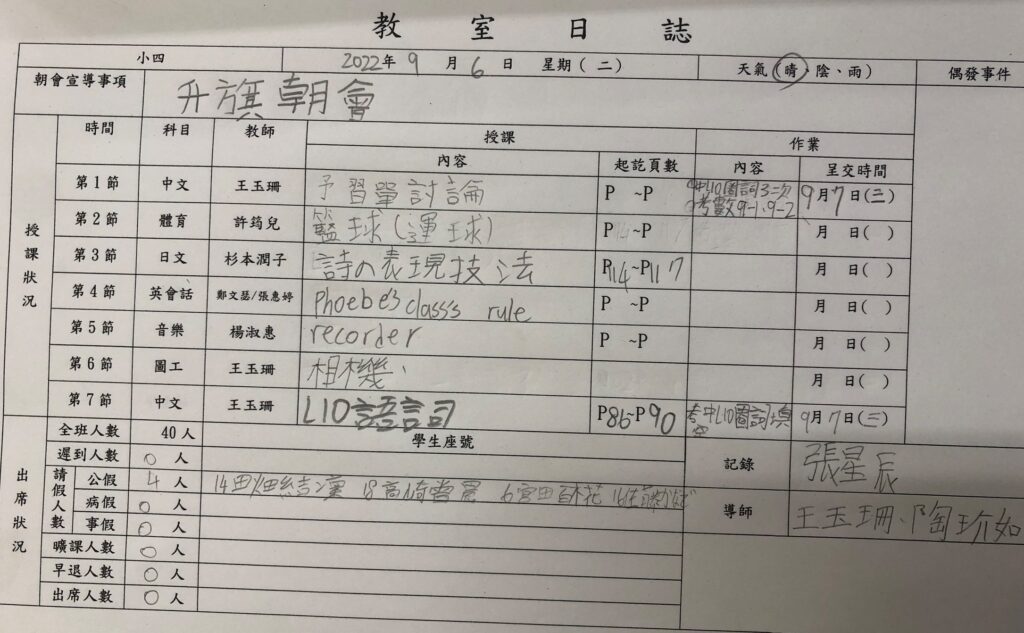 教室日誌
小四 2022年 9 月 6 日 星期(二) 天氣(晴、陰、雨) 偶發事件
朝會宣導事項 升旗朝會
授課狀況 時間 科目 教師 授課 作業
內容 起訖頁數 內容 呈交時間
第1節 中文 王玉珊 予習單討論 P ~P 中L10圈詞3次 9月7日(三)
考數9-1、9-2
第2節 體育 許筠兒 籃球(運球) P ~P 月 日( )
第3節 日文 杉本潤子 詩の表現技法 P114~P117 月 日( )
第4節 英會話 鄭文瑟/張惠婷 Phoebe's class's rule P ~P 月 日( )
第5節 音樂 楊淑惠 recorder P ~P 月 日( )
第6節 圖工 王玉珊 相機、 月 日( )
第7節 中文 王玉珊 L10語詞 P86~P90 考中L10圈詞填 9月7日(三)
出席狀況 全班人數 40人 學生座號
遲到人數 0 人 記錄 張星辰
請假人數 公假 4 人
病假 0 人 導師 王玉珊、陶玠如
事假 0 人
曠課人數 0 人
早退人數 0 人
出席人數 0 人